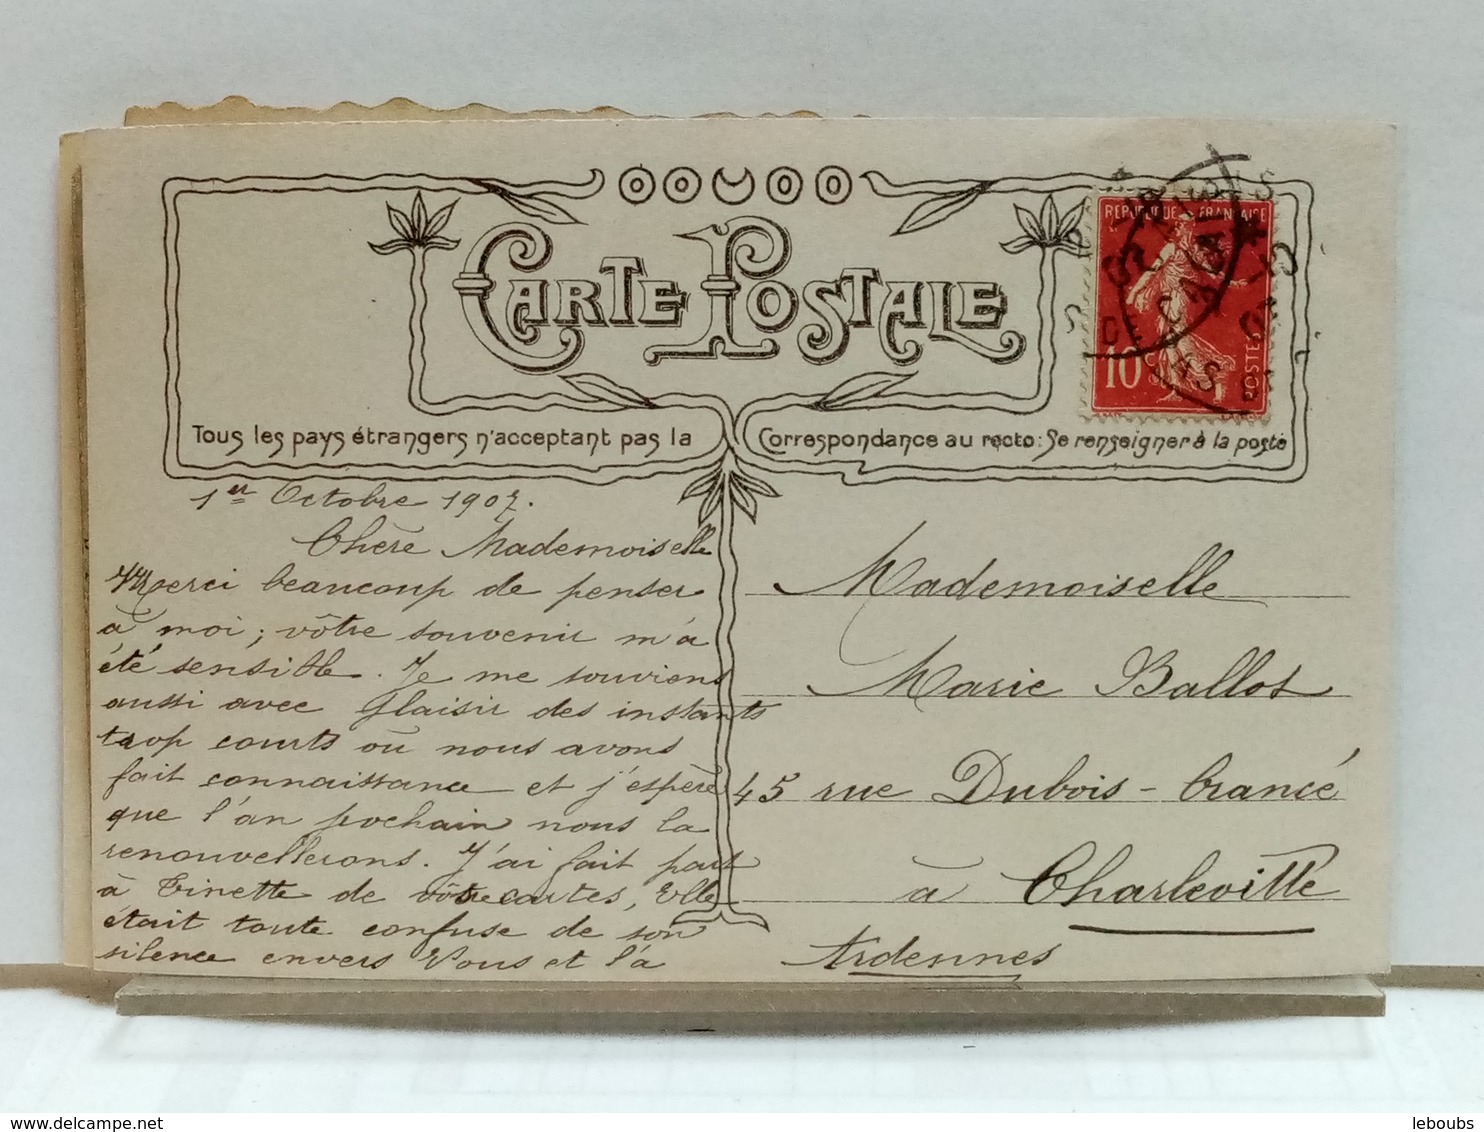 CARTE POSTALE
RÉPUBLIQUE FRANÇAISE
10c
POSTES
Tous les pays étrangers n'acceptant pas la Correspondance au recto: Se renseigner à la poste
1er Octobre 1907.
Chère Mademoiselle
Merci beaucoup de penser
à moi; vôtre souvenir m'a
été sensible. Je me souviens
aussi avec plaisir des instants
trop courts où nous avons
fait connaissance et j'espère
que l'an prochain nous la
renouvellerons. J'ai fait part
à Tinette de vôtre cartes, Elle
était toute confuse de son
silence envers Vous et l'a
Mademoiselle
Marie Ballot
45 rue Dubois-Crancé
à Charleville
Ardennes
delcampe.net
leboubs